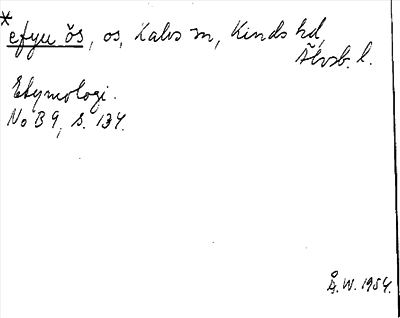 *efyu ŏs, os, Kalvs sn, Kinds hd,
Älvsb. l.
Etymologi.
No B 9, s. 134.
Å.W. 1954.